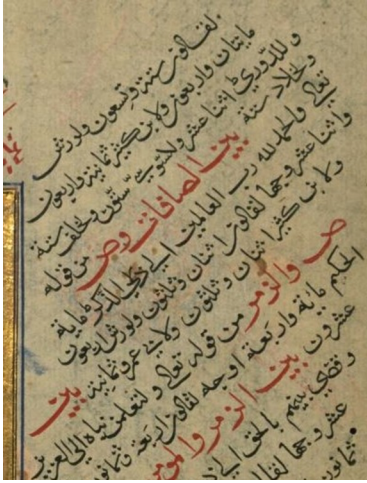 لقالون ستة وتسعون ولورش
مايتان واربعون ولابن كثير ثمانية واربعون
وللدوري اثنا عشر وللسوسي ستون ولخلف ستة
ولخلاد ستة بين الصافات وص من قوله
تعالى والحمد لله رب العالمين الى ذي الذكر ماية
واثنا عشر وجها لقالون اثنان وثلثون ولورش اربعون
ولابن كثير اثنان وثلثون ولابي عمرو ثمانية بين
ص والزمر من قوله تعالى ولتعلمن نباه الى العزيز
الحكيم ماية واربعة اوجه لقالون اربعة وثمانون
عشرون بين الزمر والمومن
وقضي بينهم بالحق الى
عشر وجها لقالو
ثمانون